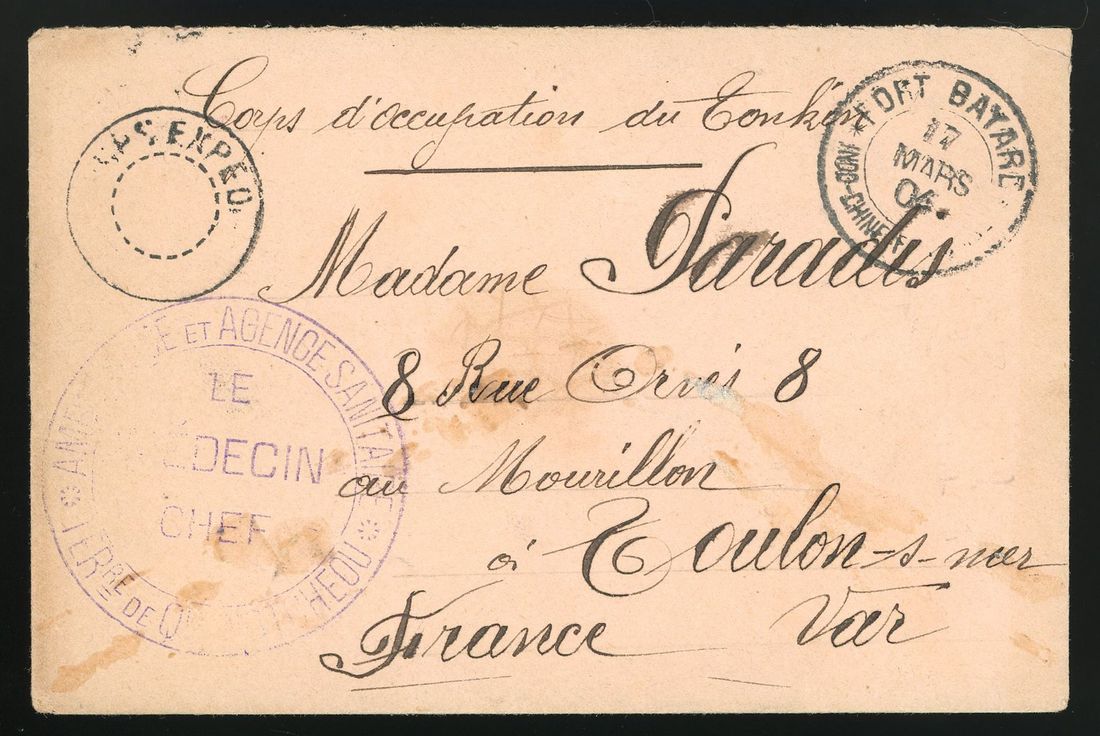 Corps d'occupation du Tonkin
CPS EXPED.
FORT BAYARD
17
MARS
04
CHINE
Madame Paradis
8 Rue Orvès 8
au Mourillon
à Toulon-s-mer
France Var
ET AGENCE SANITAIRE
LE
MÉDECIN
CHEF
TERRE DE